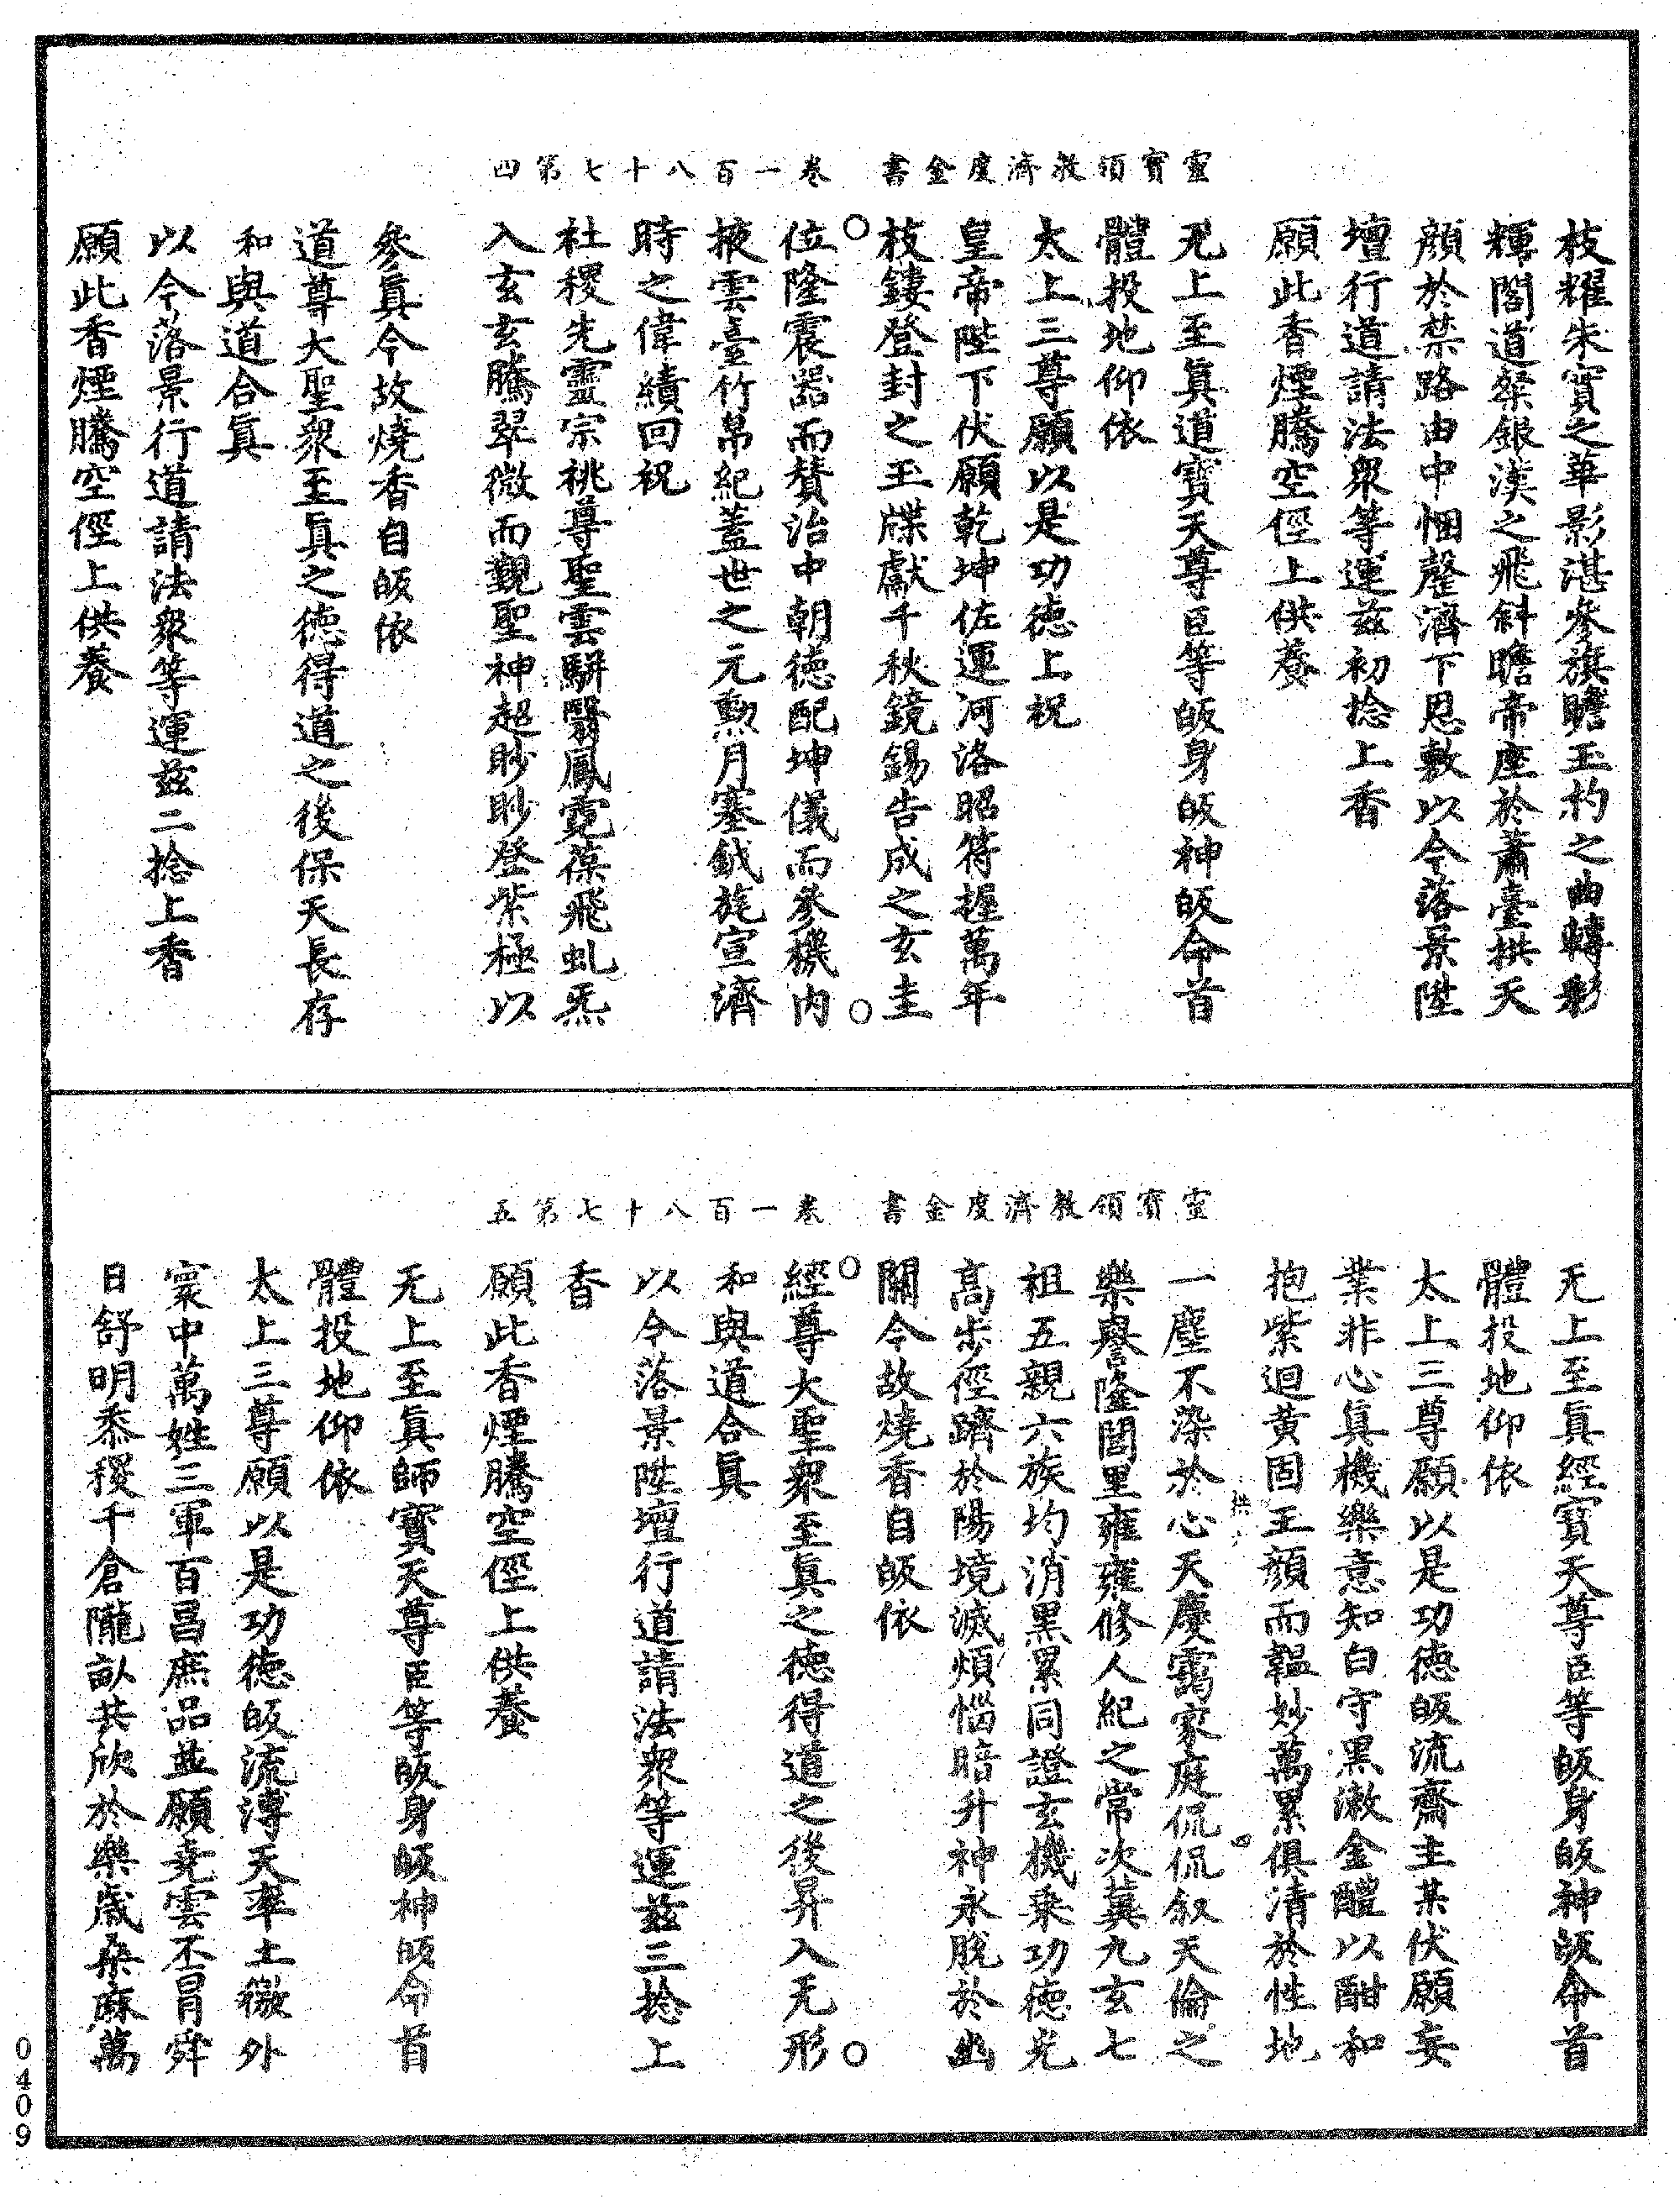 靈寶領教濟度金書　卷一百八十七第四
枝耀朱實之華影湛參旗瞻玉杓之曲轉彩
輝閣道粲銀漢之飛斜瞻帝座於蕭臺拱天
顏於禁路由中悃罄濟下恩敷以今落景陞
壇行道請法眾等運茲初捻上香
願此香煙騰空徑上供養
无上至真道寶天尊臣等皈身皈神皈命首
體投地仰依
太上三尊願以是功德上祝
皇帝陛下伏願乾坤佐運河洛昭符握萬年
枝鏤登封之玉牒獻千秋鏡錫告成之玄圭
位隆震器而贊治中朝德配坤儀而參機內
掖雲臺竹帛紀蓋世之元勳月塞鉞旄宣濟
時之偉績回祝
社稷先靈宗祧尊聖雲駢翳鳳霓葆飛虬炁
入玄玄騰翠微而覲聖神超眇眇登紫極以
參真今故燒香自皈依
道尊大聖眾至真之德得道之後保天長存
和與道合真
以今落景行道請法眾等運茲二捻上香
願此香煙騰空徑上供養
靈寶領教濟度金書　卷一百八十七第五
无上至真經寶天尊臣等皈身皈神皈命首
體投地仰依
太上三尊願以是功德皈流齋主某伏願妄
業非心真機樂意知白守黑漱金醴以酣和
抱紫迴黃固玉顏而韞妙萬累俱清於性地
一塵不染於心天慶靄家庭侃侃叙天倫之
樂譽隆閭里雍雍修人紀之常次冀九玄七
祖五親六族均消黑累同證玄機乘功德光
高步徑躋於陽境滅煩惱暗升神永脫於幽
關今故燒香自皈依
經尊大聖眾至真之德得道之後昇入无形
和與道合真
以今落景陞壇行道請法眾等運茲三捻上
香
願此香煙騰空徑上供養
无上至真師寶天尊臣等皈身皈神皈命首
體投地仰依
太上三尊願以是功德皈流溥天率土徼外
寰中萬姓三軍百昌庶品並願堯雲丕冒舜
日舒明黍稷千倉隴畝共欣於樂歲桑麻萬
0409